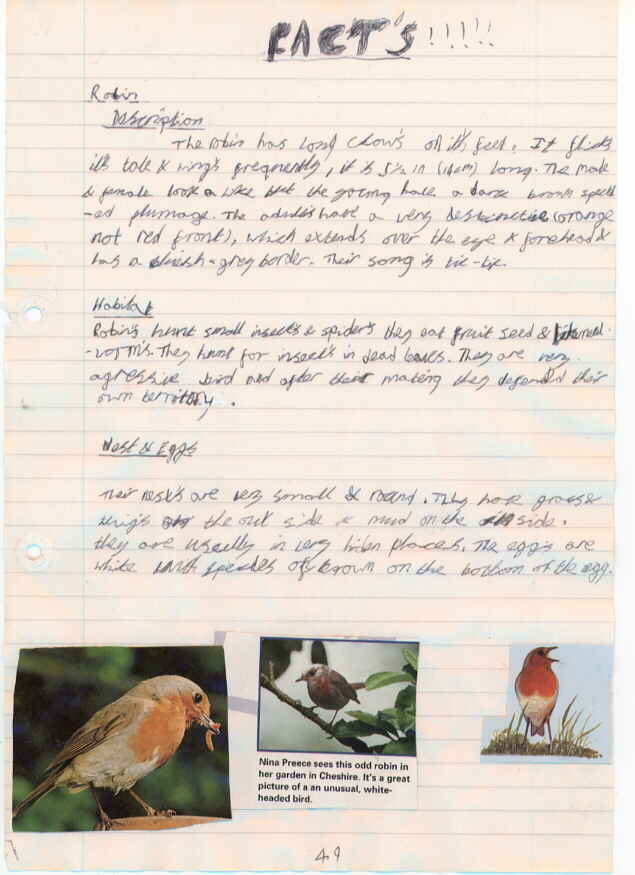 FACT'S!!!!!
Robin
Discription
The robin has long clow's on it's feet. It flicks
it's tale & wing's freqnently, it is 5½ in (14cm) long. The male
& female look a like but the young have a dark brown speckl
-ed plumage. The adults have a very destinctive (orange
not red front), which extends over the eye & forehead &
has a bluish-grey border. Their song is tic-tic.
Habitat
Robin's hunt small insect's & spider's they eat fruit seed &
-worm's. They hunt for insect's in dead leaves. They are very
agressive bird and after their mating they defend their
own territory.
Nest & Eggs
Their nest's are very small & round. They have grass &
twig's on the out side & mud on the inside.
they are usually in very hiden places. The egg's are
white with speckles of brown on the bottom of the egg.
Nina Preece sees this odd robin in
her garden in Cheshire. It's a great
picture of a an unusual, white-
headed bird.
49